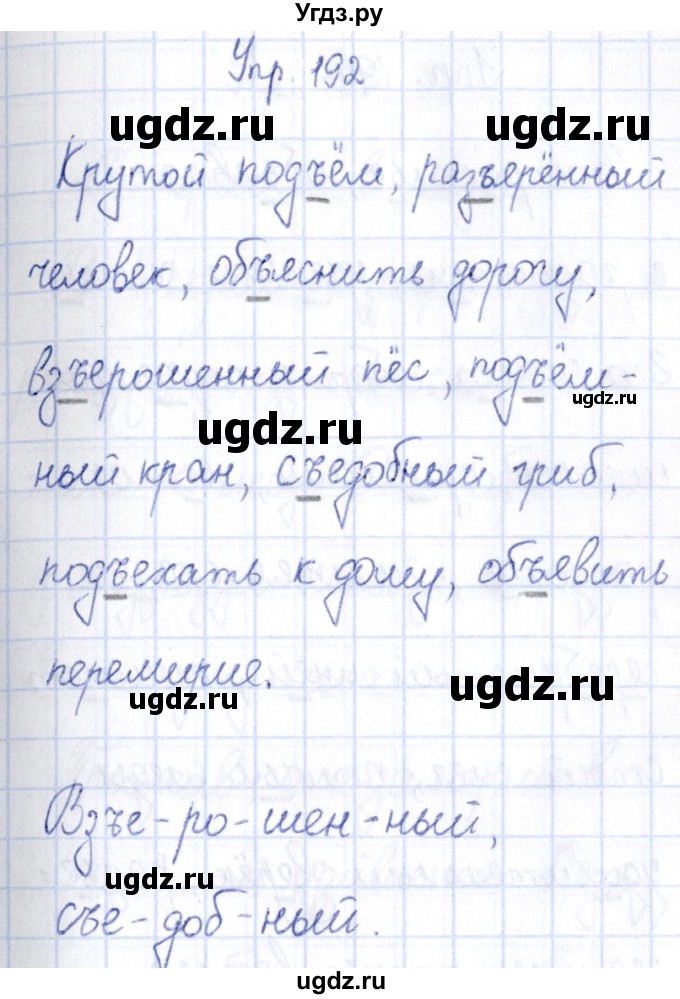 Угдз.ру
Упр. 192
ugdz.ru ugdz.ru
Крутой подъём, разъерённый
ugdz.ru
человек, объяснить дорогу,
взъерошенный пёс, подъём-
ugdz.ru
ugdz.ru
ный кран, съедобный гриб,
подъехать к дому, объявить
перемирие.
ugdz.ru
ugdz.ru
Взъе-ро-шен-ный,
ugdz.ru
съе-доб-ный.
ugdz.ru